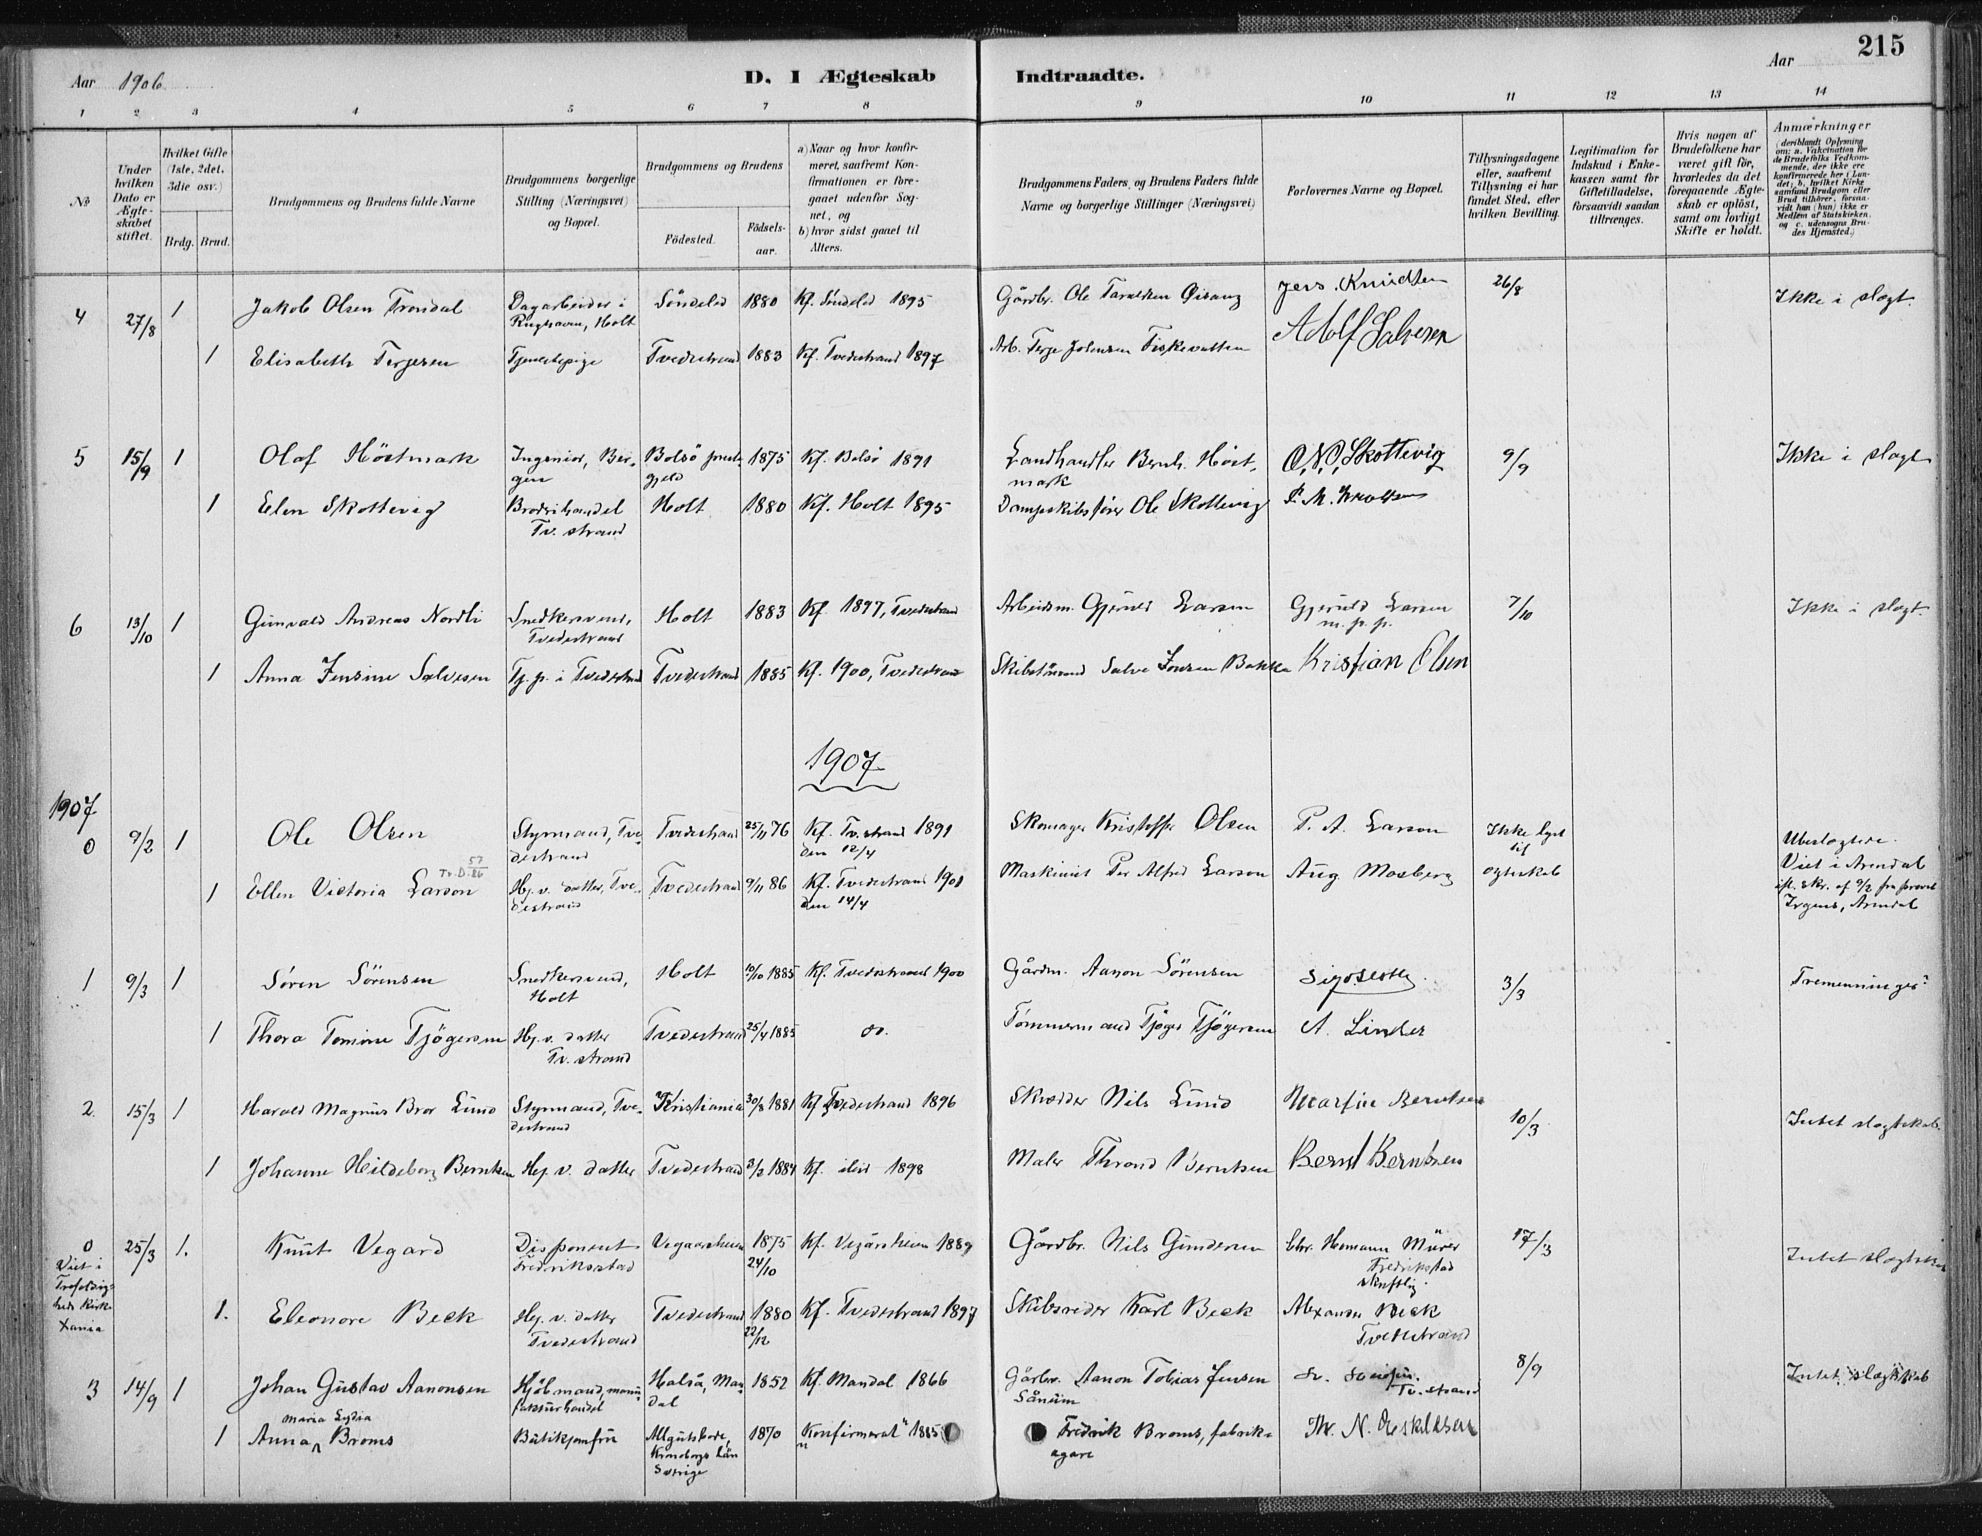 215
Aar 1906
D. I Ægteskab Indtraadte.
Aar
1 2 3 4 5 6 7 8 9 10 11 12 13 14
№
Under hvilken Dato er Ægteskabet stiftet.
Hvilket Gifte (1ste, 2det, 3die osv.)
Brdg. Brud.
Brudgommens og Brudens fulde Navne
Brudgommens borgerlige Stilling (Næringsvei) og Bopæl.
Brudgommens og Brudens
Födested.
Födselsaar.
a) Naar og hvor konfirmeret, saafremt Konfirmationen er foregaaet udenfor Sognet, og
b) hvor sidst gaaet til Alters.
Brudgommens Faders og Brudens Faders fulde Navne og borgerlige Stillinger (Næringsvei)
Forlovernes Navne og Bopæl.
Tillysningsdagene eller, saafremt Tillysning ei har fundet Sted, efter hvilken Bevilling.
Legitimation for Indskud i Enkekassen samt for Giftetilladelse, forsaavidt saadan tiltrænges.
Hvis nogen af Brudefolkene har været gift för, hvorledes da det foregaaende Ægteskab er oplöst, samt om lovligt Skifte er holdt.
Anmærkninger (deriblandt Oplysning om: a. Vakcination for de Brudefolks Vedkommende, der ikke ere konfirmerede her i Landet; b. hvilket Kirkesamfund Brudgom eller Brud tilhörer, forsaavidt han (hun) ikke er Medlem af Statskirken, og c. udensogns Brudes Hjemsted.)
4 27/8 1 Jakob Olsen Trondal Dagarbeider i Söndeled 1880 Kf. Söndeled 1895 Gårdbr. Ole Taraldsen Jens Knudsen 26/8 Ikke i slægt.
Holt
1 Elisabeth Terjesen Tjenestepige Tvedestrand 1883 Kf. Tvedestrand 1897 Arb. Terje Johnsen Fiskevatten Adolf Salvesen
5 15/9 1 Olaf Höstmark Ingeniör, Bergen Bolsö prestegjeld 1875 Kf. Bolsö 1891 Landhandler Bernh. Höstmark O. N. Skottevig 9/9 Ikke i slægt
1 Elen Skottevig Broderihandel Tv. strand Holt 1880 Kf. Holt 1895 Dampskibsfører Ole Skottevig P. M.
6 13/10 1 Gunvald Andreas Nordli Snedkersvend, Tvedestrand Holt 1883 Kf. 1897, Tvedestrand Arbeidsm. Gjeruld Larsen Gjeruld Larsen m. p. p. 7/10 Ikke i slægt.
1 Anna Jensine Salvesen Tj. p. i Tvedestrand Tvedestrand 1885 Kf. 1900, Tvedestrand Salve Jensen Bakke Kristian Olsen
1907
1907
0 9/2 1 Ole Olsen Styrmand, Tvedestrand Tvedestrand 25/11 76 Kf. Tv. strand 1891 den 12/4 Skomager Kristoffer Olsen P. A. Larson Ikke lyst til ægteskab Ubeslægtede. Viet i Arendal ifl. skr. af 9/2 fra provst Irgens, Arendal
Tv. D. 57/86
1 Ellen Victoria Larson Hj. v. datter, Tvedestrand Tvedestrand 9/11 86 Kf. Tvedestrand 1901 den 14/4 Maskinist Per Alfred Larson Aug. Mosberg
1 9/3 1 Sören Sörensen Snedkersvend, Holt Holt 10/10 1885 Kf. Tvedestrand 1900 Gårdm. Aanon Sörensen 3/3 Tremenninger?
1 Thora Tomine Tjögersen Hj. v. datter Tv. strand Tvedestrand 25/4 1885 do. Tömmermand Tjöger Tjögersen A. Linder
2. 15/3 1 Harald Magnus Bror Lund Styrmand, Tvedestrand Kristiania 30/8 1881 Kf. Tvedestrand 1896 Skrædder Nils Lund Martin Berntsen 10/3 Intet slægtskab.
1 Johanne Hildeborg Berntsen Hj. v. datter Tvedestrand 3/2 1884 Kf. ibid 1898 Maler Thrond Berntsen Bernt Berntsen
0 25/3 1. Knut Vegard Disponent Fredriksstad Vegaarsheien 1875 24/10 Kf. Vegårsheien 1889 Gårdbr. Nils Gundersen Chr. Hermann Mürer Fredrikstad skriftlig. 17/3 Intet slægtskab
Viet i Trefoldigheds Kirke Xania
1. Eleonore Beck Hj. v. datter Tvedestrand Tvedestrand 1880 22/12 Kf. Tvedestrand 1897 Skibsreder Karl Beck Alexander Beck Tvedestrand
3 14/9 1 Johan Gustav Aanonsen Kjöbmand, manufakturhandel Halså, Mandal 1852 Kf. Mandal 1866 Gårbr. Aanon Tobias Jensen Sånum Tv. strand 8/9 Intet slægtskab
1 Anna Maria Lydia Broms Butikjomfru Allgutsbode, Kronobergs Län Sverige 1870 Konfirmerat 1885 Fredrik Broms, fabriksägare Th. N. Aeskildsen